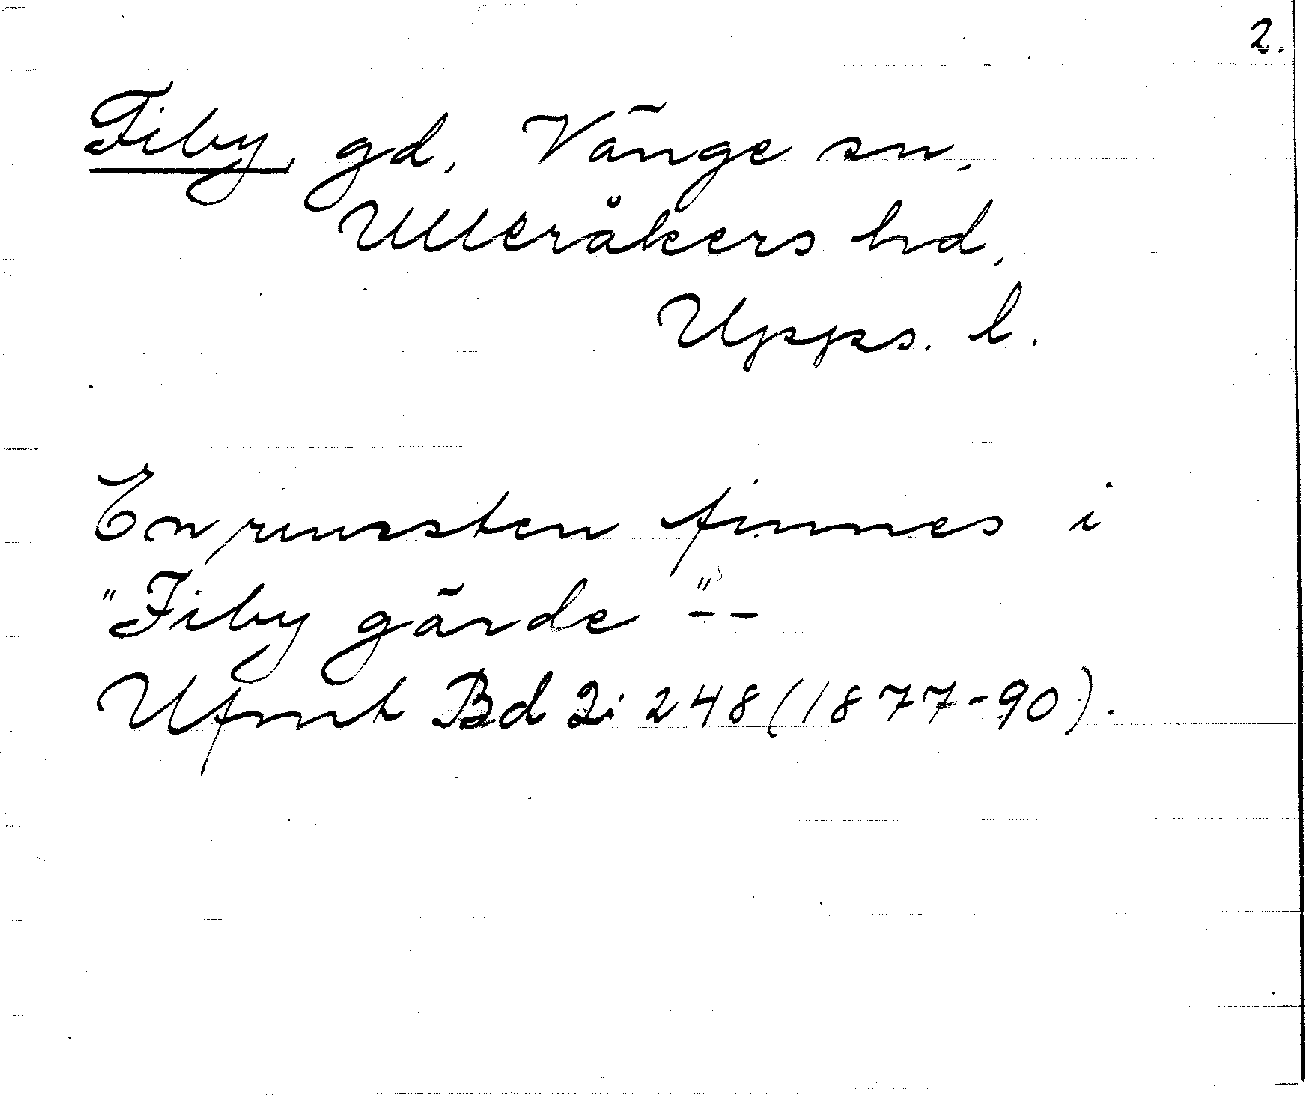 2.
Fiby, gd, Vänge sn,
Ulleråkers hd,
Upps. l.
En runsten finnes i
"Fiby gärde" --
Ufmt Bd 2: 248 (1877-90).